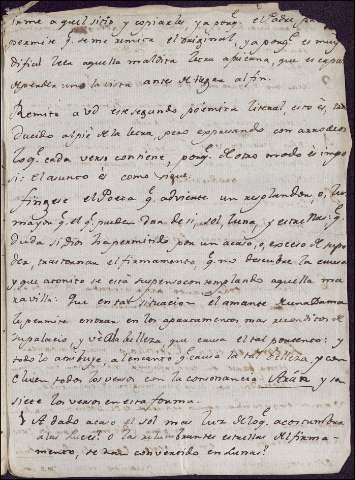 irme a aquel sitio, y copiarles, ya porq. el Padre
permite q. se me remita el original, ya porq. es muy
dificil leer aquella maldita letra africana, que es capaz
de perder uno la vista antes de llegar al fin.
Remito a Vd este segundo poemita literal esto es, tra
ducido al pie de la letra, pero expresando con arrodeos
loq. cada verso contiene, porq. de otro modo es impo
si: el asunto es como sigue.
fingese el Poeta q. advierte un resplandor, o, luz
mayor q. el q. pueden dar de si, sol, luna, y estrellas: q.
duda si dios ha permitido por un acaso, o, exceso de su po
der, trastornar el firmamento, q. no descubre la causa
y que atonito se está suspenso contemplando aquella ma
ravilla: que en tal situacion el amante de una Dama
le permite entrar en los apartamentos mas recónditos de
su palacio, y vé la belleza que causa el tal portento: y
todo lo atribuye, al encanto q. causa la tal belleza, y con
cluyen todos los versos con la consonancia y son
siete los versos en esta forma.
A dado acaso el sol mas luz de loq. acostumbra
a las luces? O las relumbrantes estrellas del firma-
mento, se han convertido en Lunas?